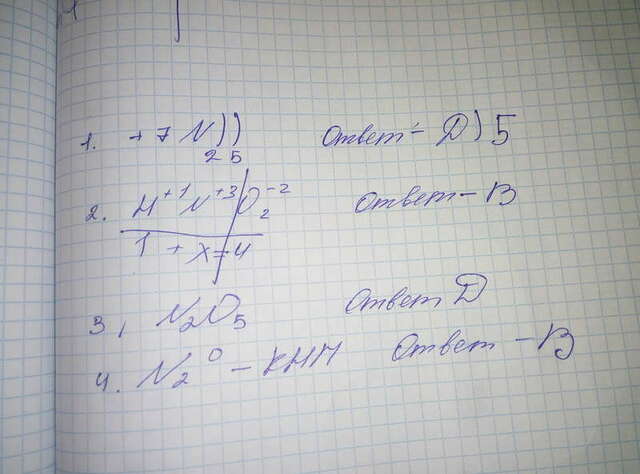 1. +7 N ) ) Ответ - D) 5
2 5
2. H⁺¹ N⁺³ O₂⁻² Ответ - B
1 + x = 4
3, N₂O₅ Ответ D
4. N₂⁰ - КНП Ответ - B